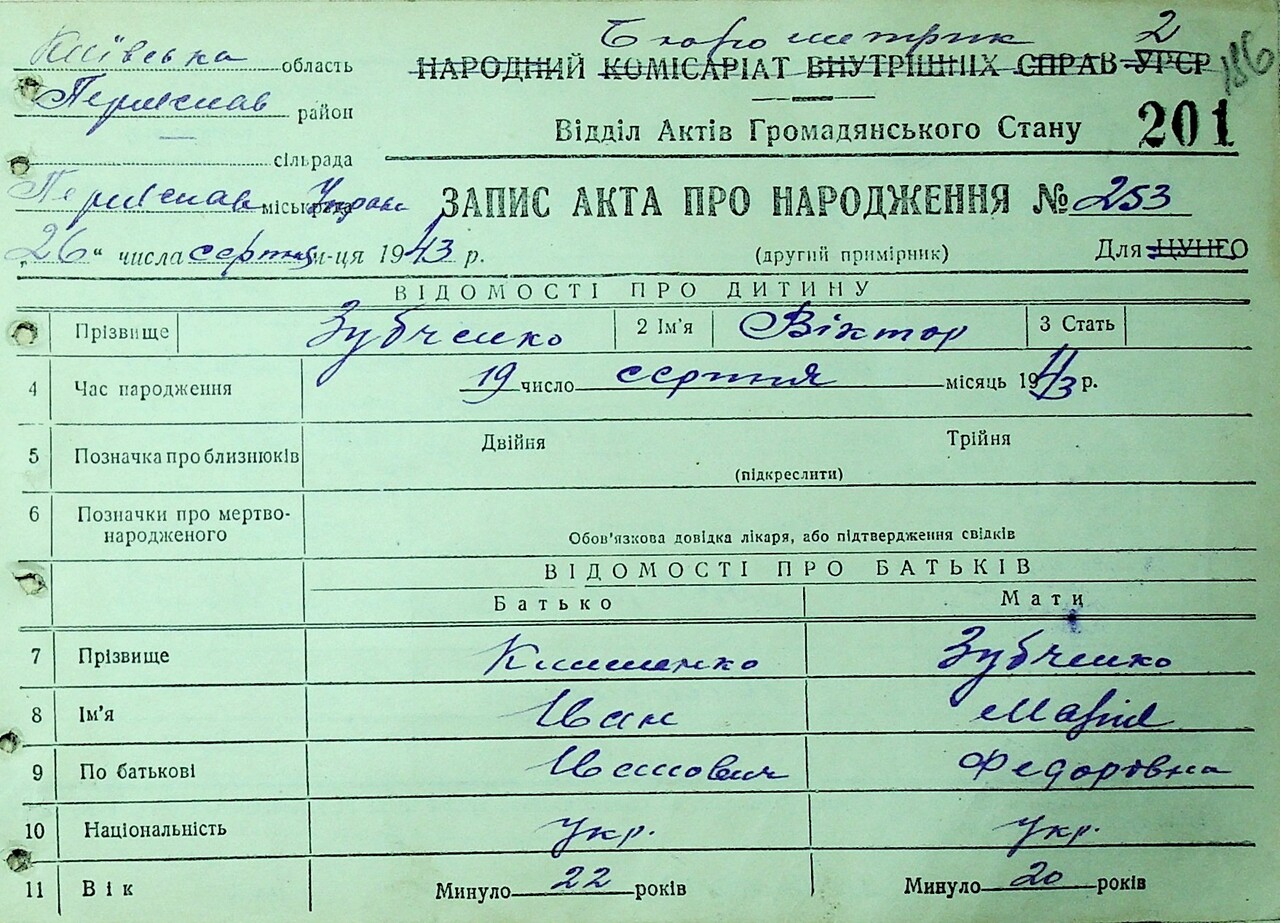 Київська область
Переяслав район
сільрада
Переяслав міськрада Управа
"26" числа серпня м-ця 1943 р.
Бюро метрик 2
186
НАРОДНИЙ КОМІСАРІАТ ВНУТРІШНІХ СПРАВ УРСР
Відділ Актів Громадянського Стану 201
ЗАПИС АКТА ПРО НАРОДЖЕННЯ № 253
(другий примірник) Для ЦУНГО
ВІДОМОСТІ ПРО ДИТИНУ
Прізвище Зубченко 2 Ім'я Віктор 3 Стать
4 Час народження 19 число серпня місяць 1943 р.
5 Позначка про близнюків Двійня Трійня
(підкреслити)
6 Позначки про мертво-
народженого
Обов'язкова довідка лікаря, або підтвердження свідків
ВІДОМОСТІ ПРО БАТЬКІВ
Батько Мати
7 Прізвище Клименко Зубченко
8 Ім'я Іван Марія
9 По батькові Іванович Федорівна
10 Національність Укр. Укр.
11 Вік Минуло 22 років Минуло 20 років